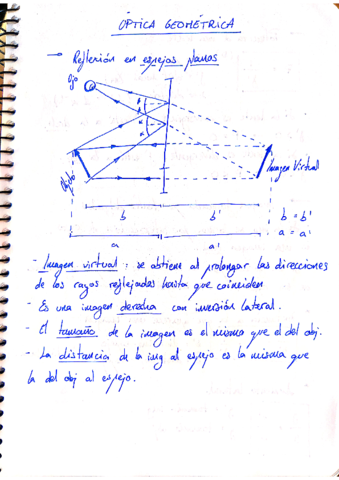 ÓPTICA GEOMÉTRICA
→ Reflexión en espejos planos
Ojo
Objeto
Imagen Virtual
b b'
b = b'
a = a'
a a'
- Imagen virtual: se obtiene al prolongar las direcciones
de los rayos reflejados hasta que coinciden
- Es una imagen derecha con inversión lateral.
- El tamaño de la imagen es el mismo que el del obj.
- La distancia de la img al espejo es la misma que
la del obj al espejo.